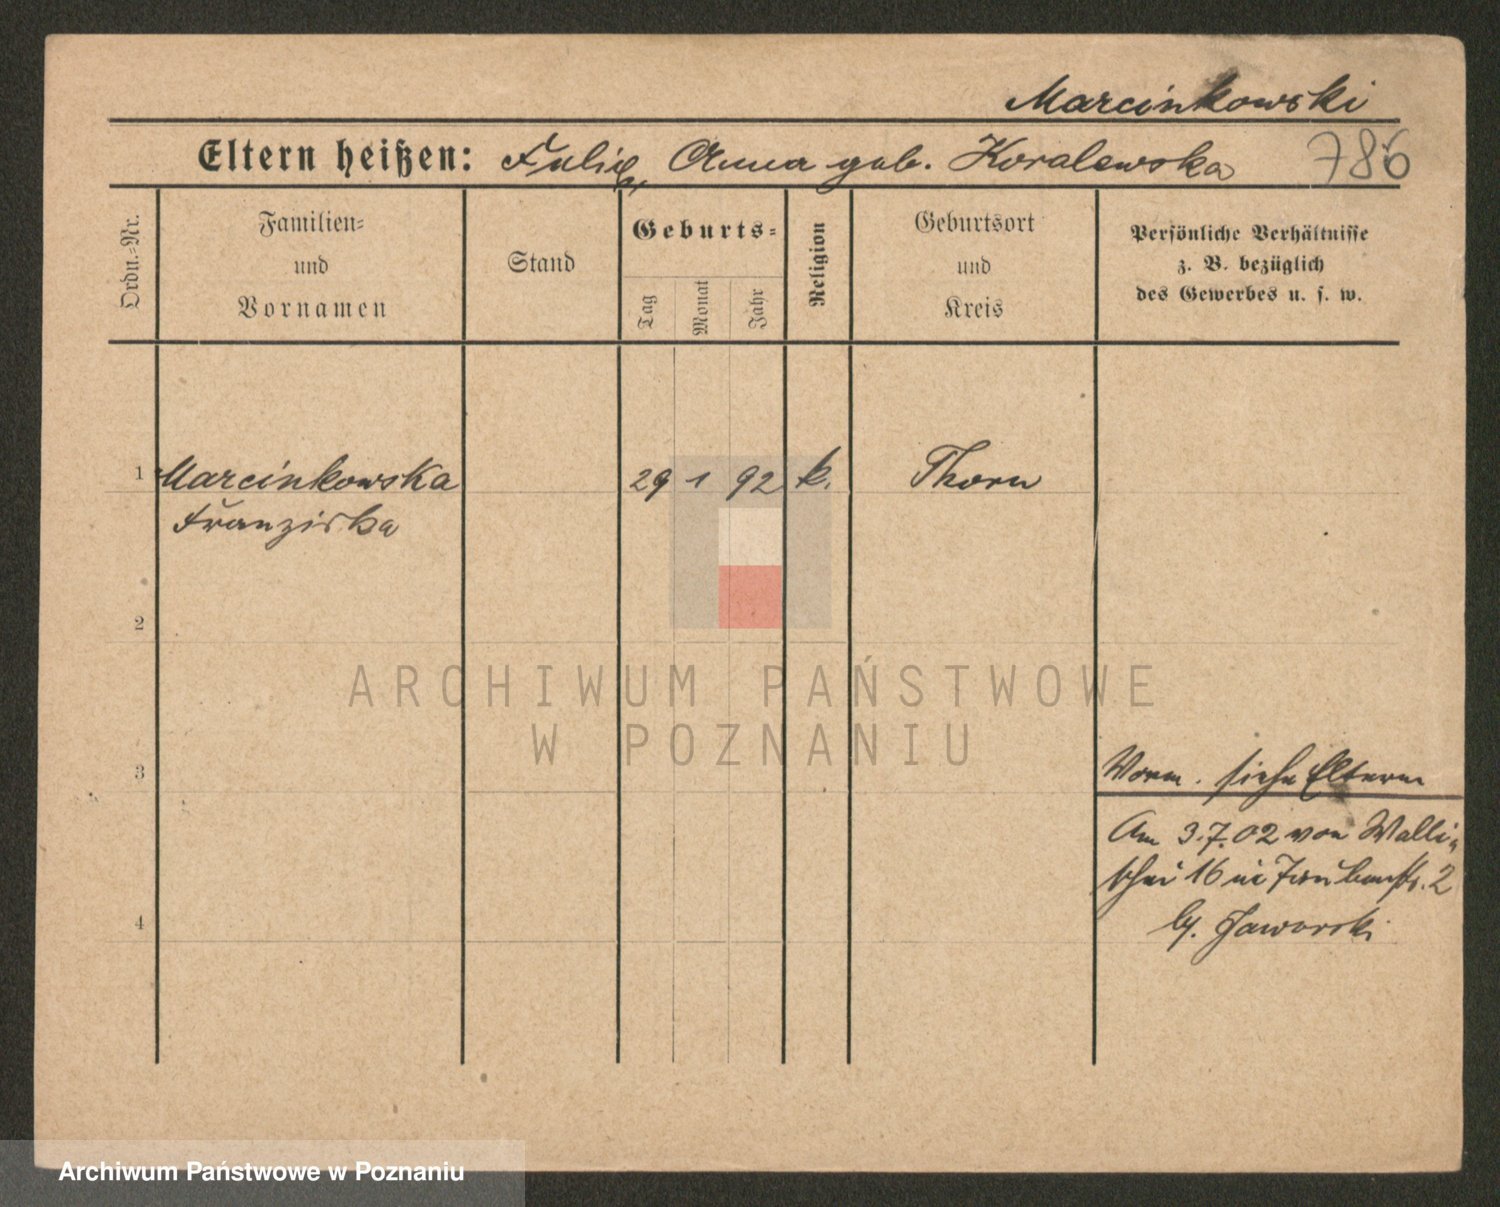 Marcinkowski
Eltern heißen: Felix, Anna geb. Koralewska 786
Ordn.-Nr.
Familien-
und
Vornamen
Stand
Geburts-
Tag
Monat
Jahr
Religion
Geburtsort
und
Kreis
Persönliche Verhältnisse
z. B. bezüglich
des Gewerbes u. s. w.
1 Marcinkowska 29 1 92 k. Thorn
Franziska
2
ARCHIWUM PAŃSTWOWE
W POZNANIU
3
Vorm. siehe Eltern
Am 3.7.02 von Walli-
schei 16 in Taubenstr. 2
by. Jaworski
4
Archiwum Państwowe w Poznaniu